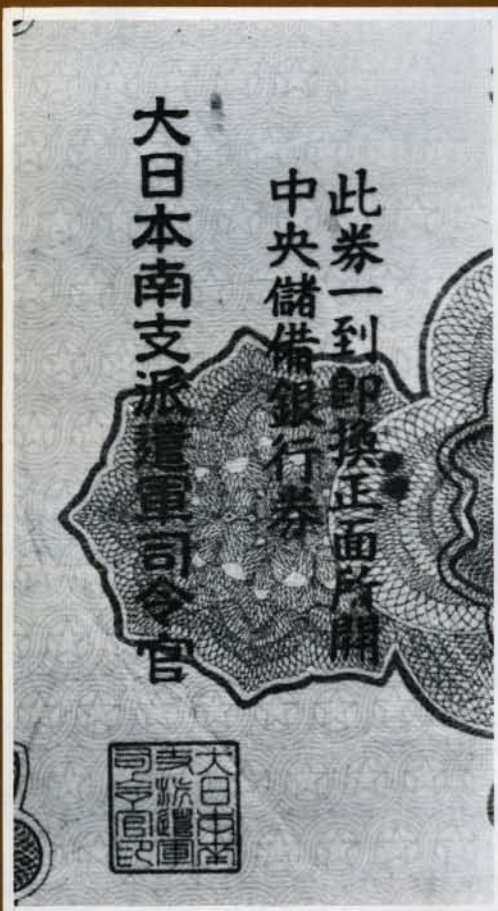 此券一到即換正面所開
中央儲備銀行券
大日本南支派遣軍司令官
大日本南
支派遣軍
司令官印